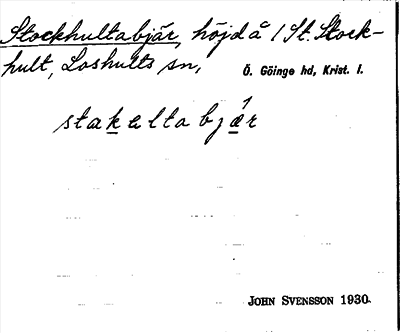 Stockhultabjär, höjd å 1 St. Stock-
hult, Loshults sn,
Ö. Göinge hd, Krist. l.
stakeltabjær
JOHN SVENSSON 1930.